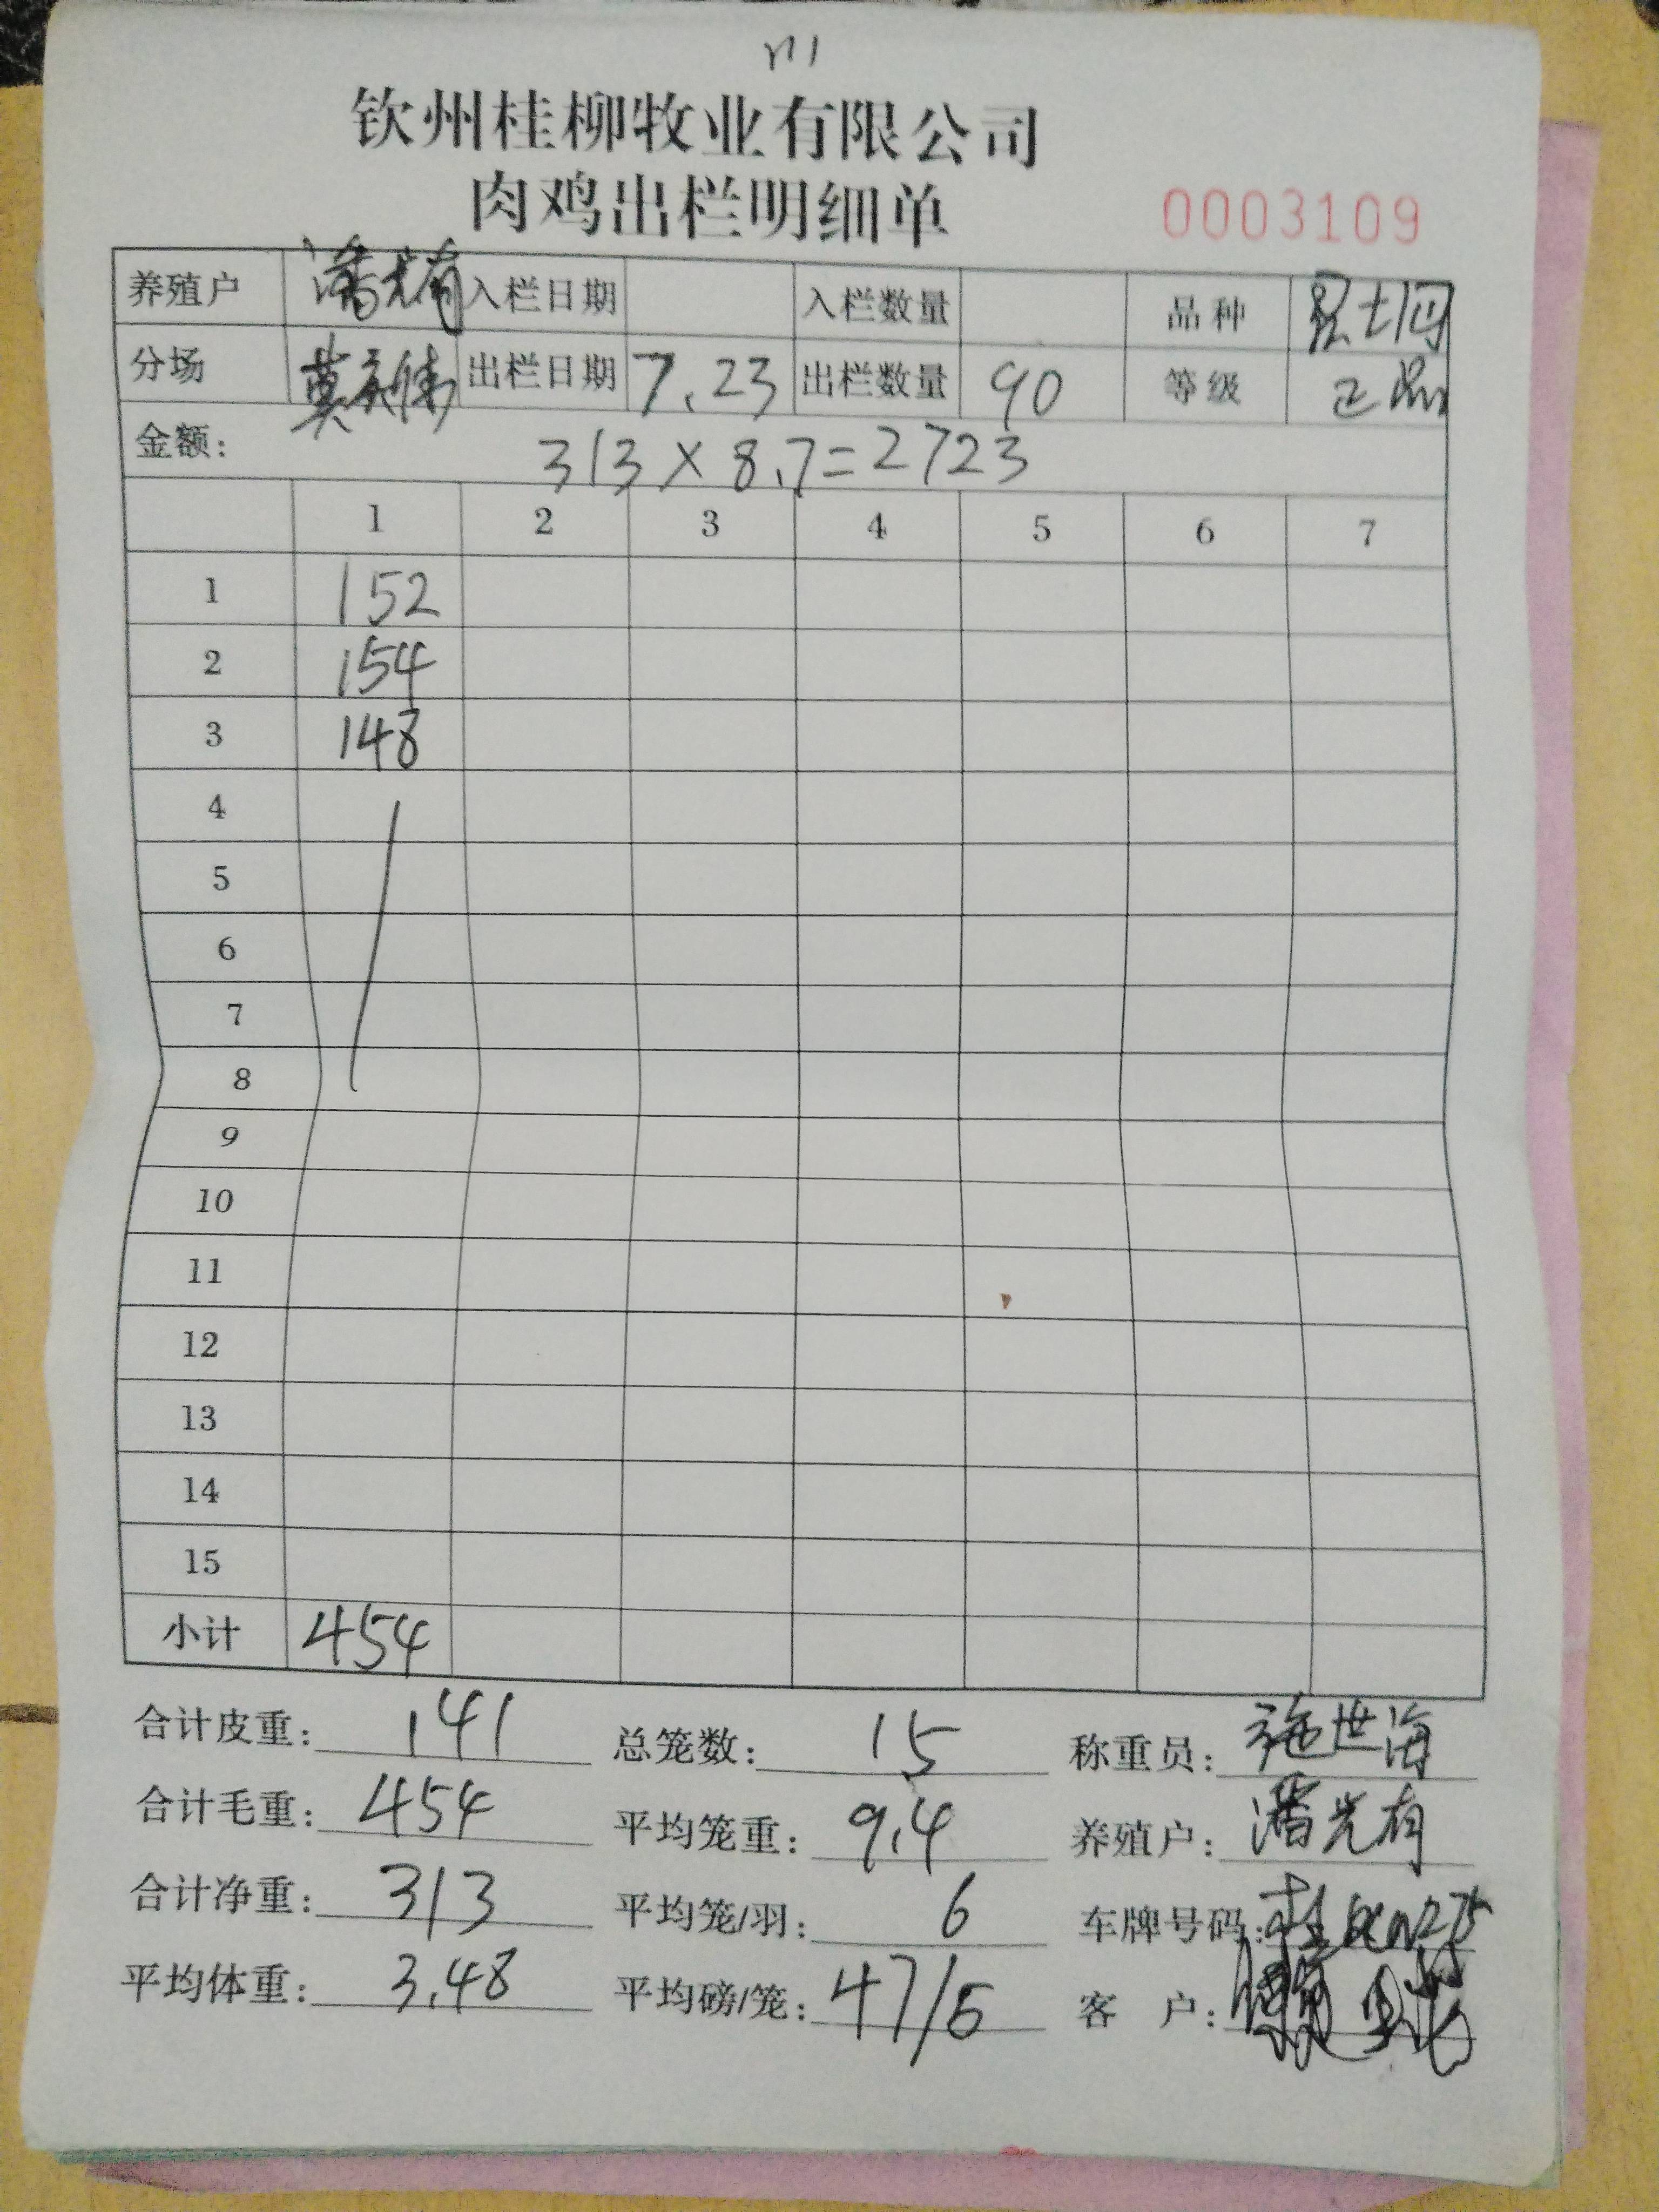 钦州桂柳牧业有限公司
肉鸡出栏明细单 0003109
养殖户 潘光有 入栏日期 入栏数量 品种
分场 莫 出栏日期 7.23 出栏数量 90 等级 正品
金额: 313×8.7=2723
1 2 3 4 5 6 7
1 152
2 154
3 148
4
5
6
7
8
9
10
11
12
13
14
15
小计 454
合计皮重: 141 总笼数: 15 称重员: 施世海
合计毛重: 454 平均笼重: 9.4 养殖户: 潘光有
合计净重: 313 平均笼/羽: 6 车牌号码:
平均体重: 3.48 平均磅/笼: 47/5 客 户: